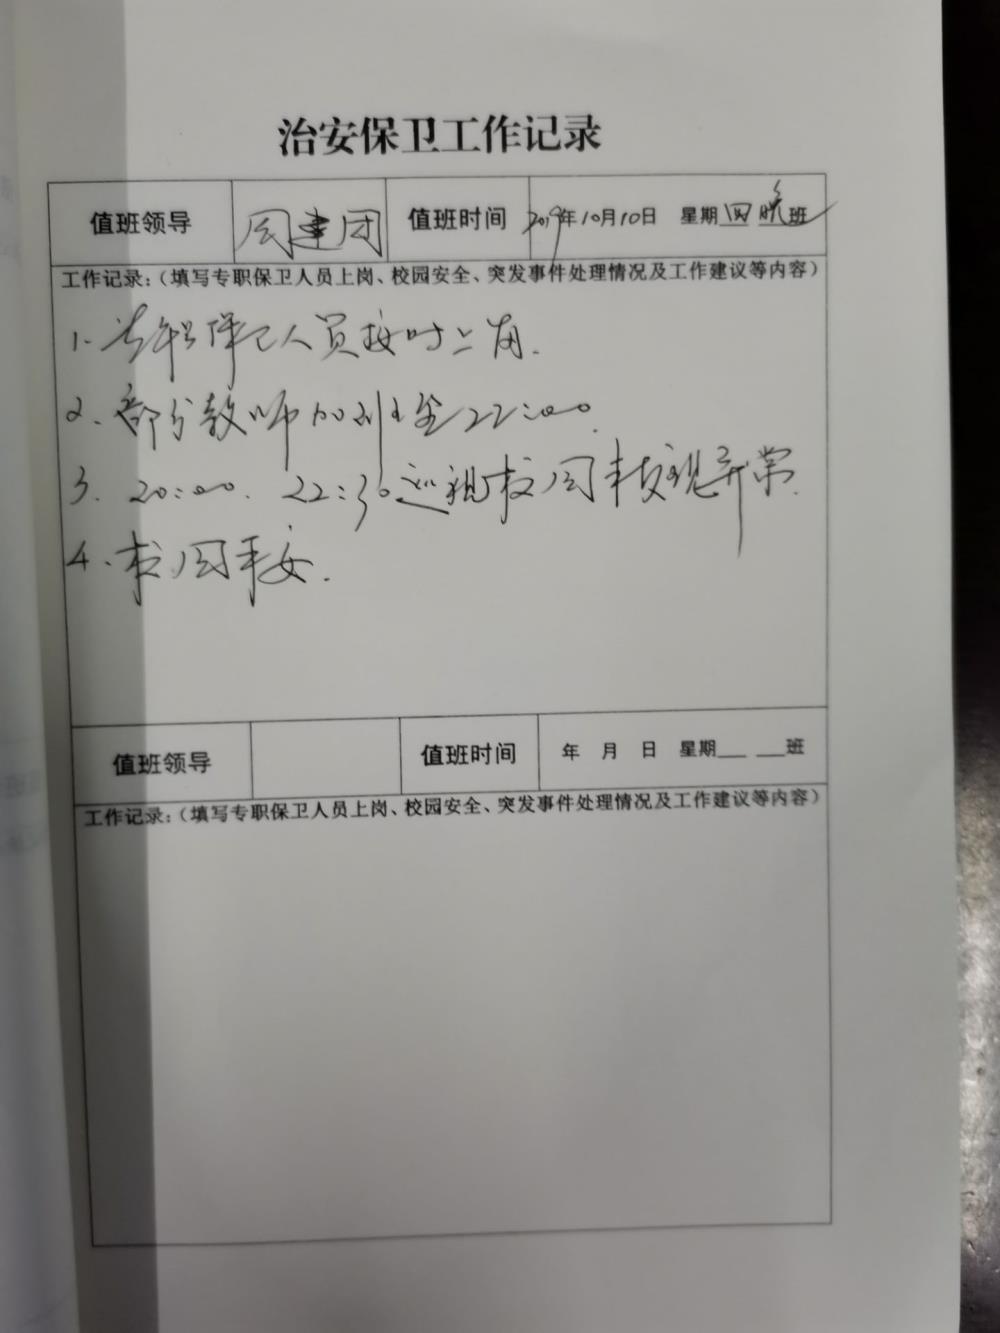 治安保卫工作记录
值班领导 周建团 值班时间 2019年10月10日 星期四 晚班
工作记录:(填写专职保卫人员上岗、校园安全、突发事件处理情况及工作建议等内容)
1. 专职保卫人员按时上岗.
2. 部分教师加班至22:00.
3. 20:00. 22:30巡视校园未发现异常.
4. 校园平安.
值班领导 值班时间 年 月 日 星期___ ___班
工作记录:(填写专职保卫人员上岗、校园安全、突发事件处理情况及工作建议等内容)